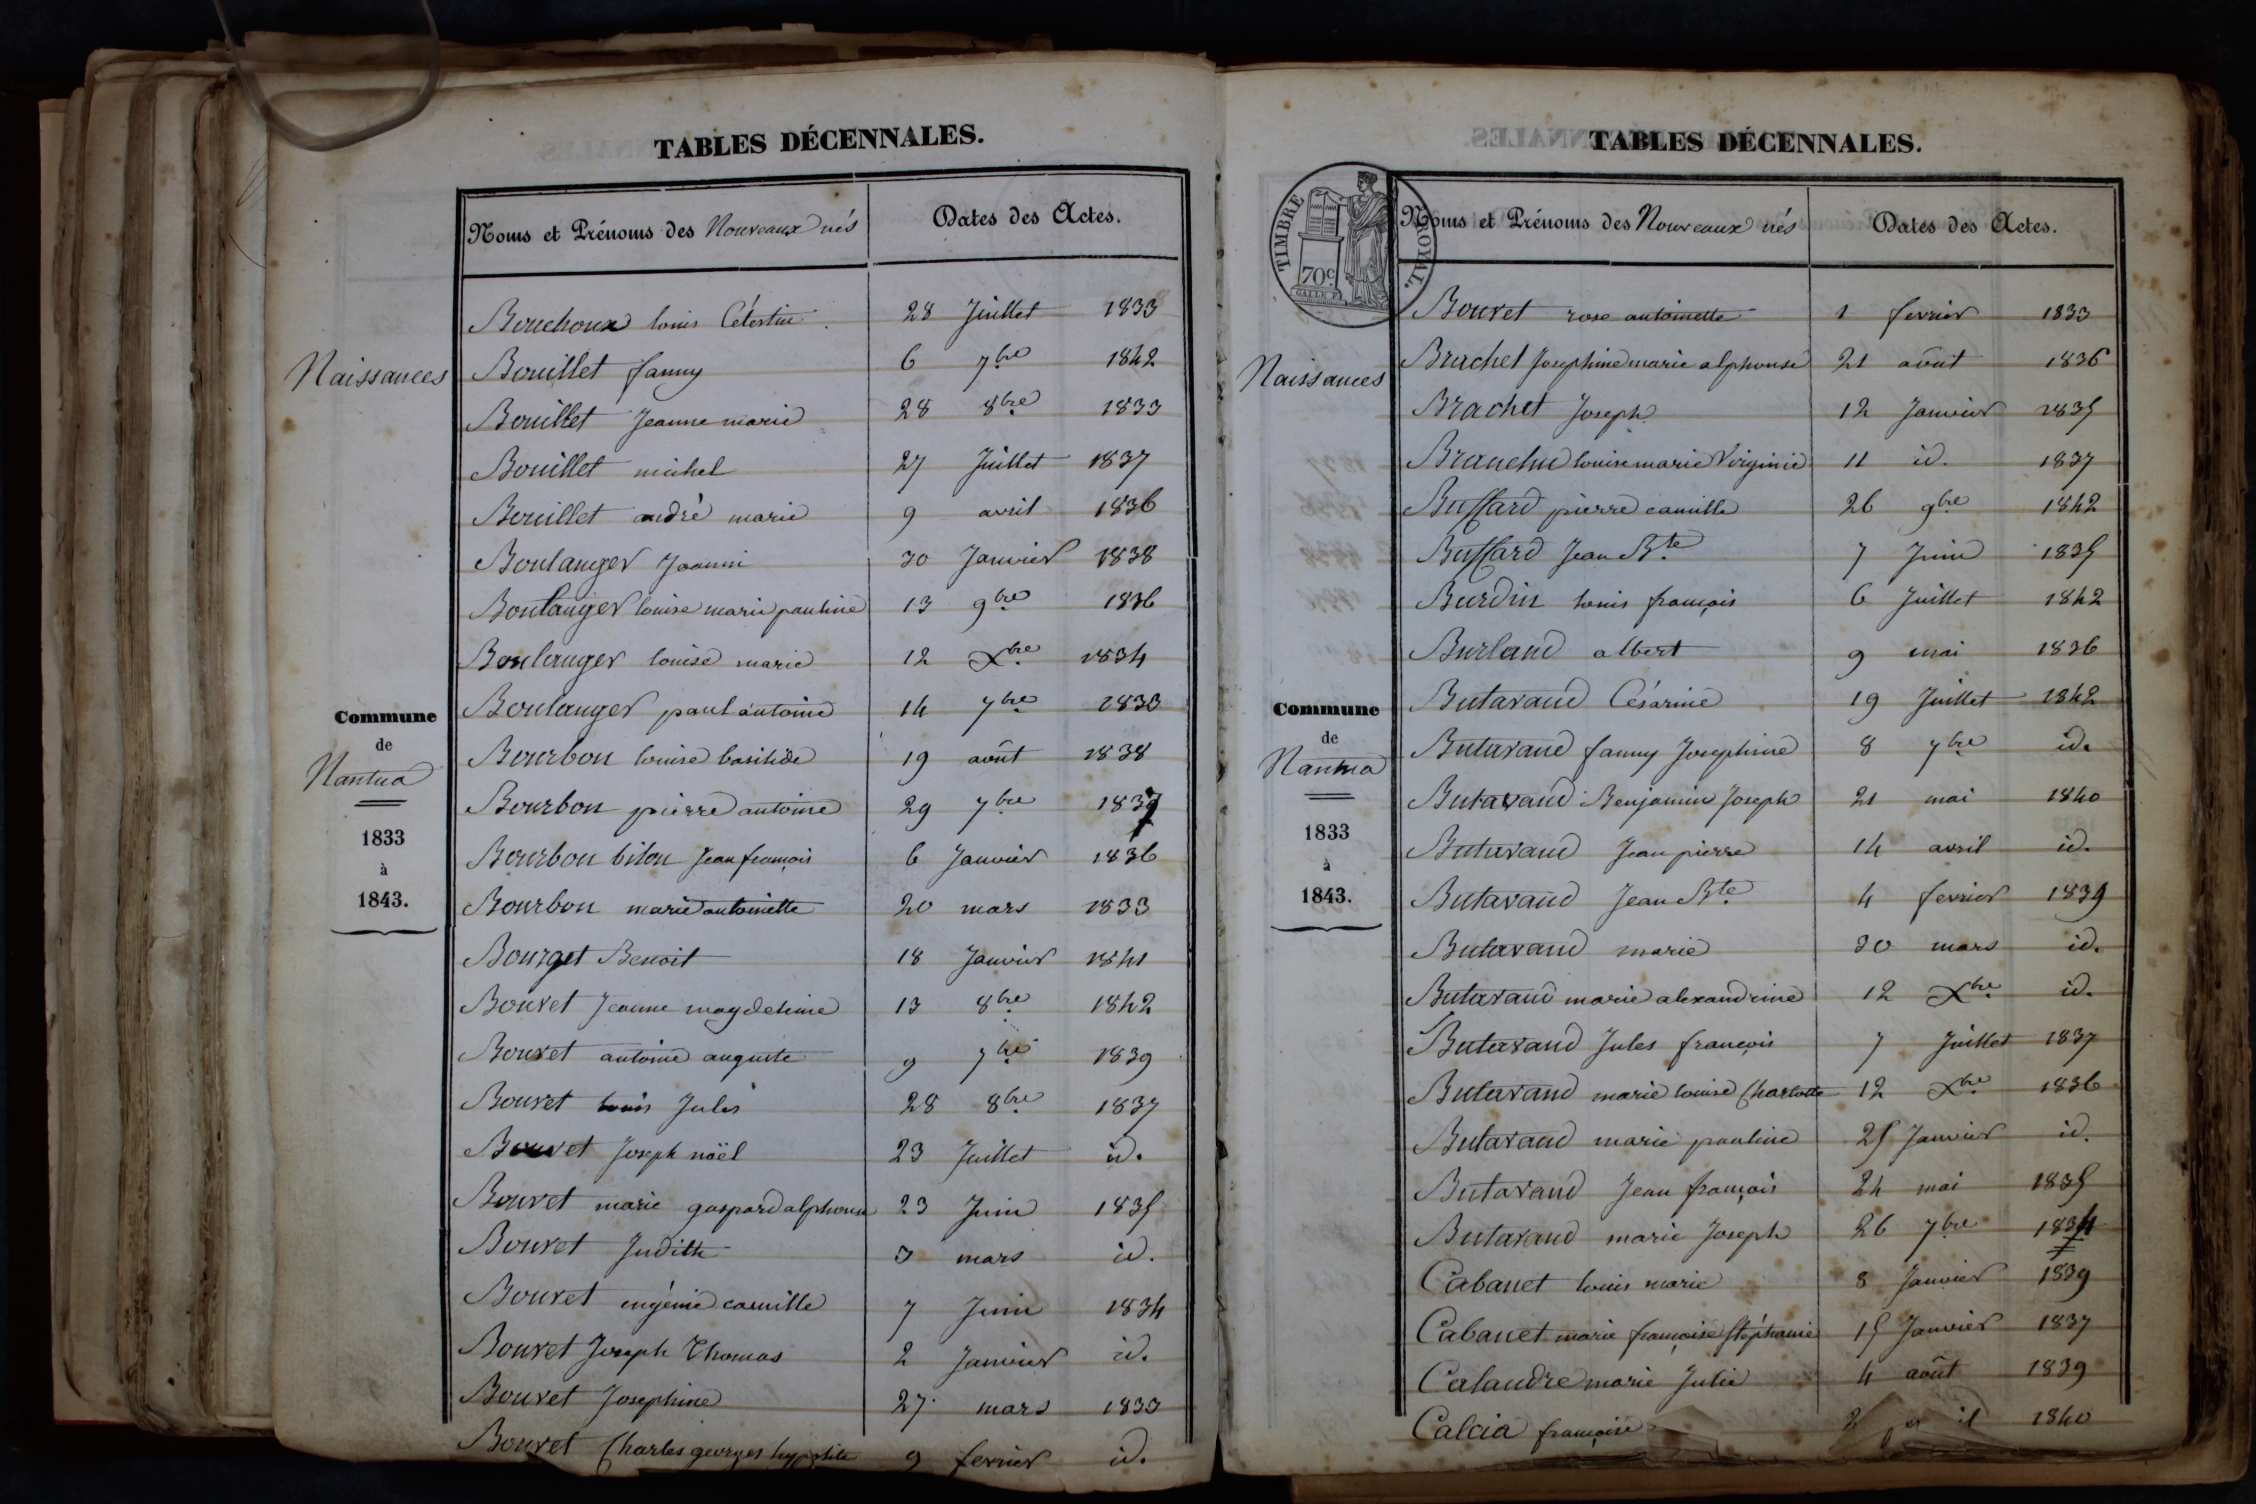 TABLES DÉCENNALES.
Noms et Prénoms des Nouveaux nés Dates des Actes.
Naissances
Commune
de
Nantua
1833
à
1843.
Bouchoux louis Célestin 28 Juillet 1833
Bouillet fanny 6 7bre 1842
Bouillet Jeanne marie 28 8bre 1833
Bouillet michel 27 Juillet 1837
Bouillet andré marie 9 avril 1836
Boulanger Joanni 30 Janvier 1838
Boulanger louise marie pauline 13 9bre 1836
Boulanger louise marie 12 Xbre 1834
Boulanger paul antoine 14 7bre 1833
Bourbon louise basilide 19 août 1838
Bourbon pierre antoine 29 7bre 1837
Bourbon biton Jean françois 6 Janvier 1836
Bourbon marie antoinette 20 mars 1833
Bourget Benoit 18 Janvier 1841
Bouvet Jeanne magdeleine 13 8bre 1842
Bouvet antoine auguste 9 7bre 1839
Bouvet louis Jules 28 8bre 1837
Bouvet Joseph noël 23 Juillet id.
Bouvet marie gaspard alphonse 23 Juin 1835
Bouvet Judith 3 mars id.
Bouvet eugénie camille 7 Juin 1834
Bouvet Joseph Thomas 2 Janvier id.
Bouvet Josephine 27 mars 1833
Bouvet Charles georges hypolite 9 fevrier id.
TABLES DÉCENNALES.
TIMBRE ROYAL.
70c
Noms et Prénoms des Nouveaux nés Dates des Actes.
Naissances
Commune
de
Nantua
1833
à
1843.
Bouvet rose antoinette 1 fevrier 1833
Brachet Josephine marie alphonse 21 août 1836
Brachet Joseph 12 Janvier 1835
Branchu louise marie Virginie 11 id. 1837
Buffard pierre camille 26 9bre 1842
Buffard Jean Bte 7 Juin 1835
Burdin louis françois 6 Juillet 1842
Burland albert 9 mai 1836
Butavand Césarine 19 Juillet 1842
Butavand fanny Josephine 8 7bre id.
Butavand Benjamin Joseph 21 mai 1840
Butavand Jean pierre 14 avril id.
Butavand Jean Bte 4 fevrier 1839
Butavand marie 30 mars id.
Butavand marie alexandrine 12 Xbre id.
Butavand Jules françois 7 Juillet 1837
Butavand marie louise Charlotte 12 Xbre 1836
Butavand marie pauline 25 Janvier id.
Butavand Jean françois 24 mai 1835
Butavand marie Joseph 26 7bre 1834
Cabanet louis marie 8 Janvier 1839
Cabanet marie françoise Stéphanie 15 Janvier 1837
Calandre marie Julie 4 août 1839
Calcia françoise 1840